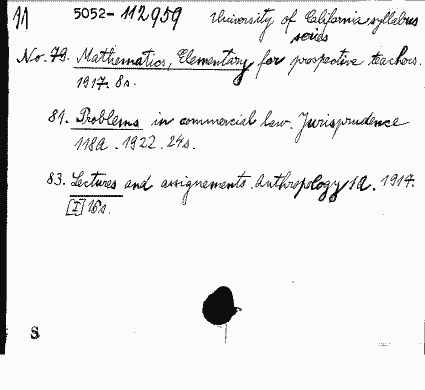 5052-112959 University of California syllabus
series
No. 79. Mathematics, Elementary for prospective teachers.
1917. 8s.
81. Problems in commercial law. Jurisprudence
118a. 1922. 24s.
83. Lectures and assignements. Anthropology 1a. 1917.
[I] 16s.
S